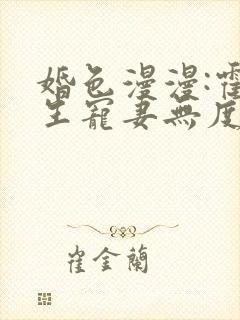 婚色漫漫:霍
生寵妻無度
崔金蘭